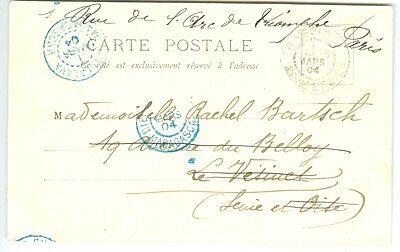 Rue de l'Arc de Triomphe
Paris
CARTE POSTALE
Ce côté est exclusivement réservé à l'adresse
MARS
04
Mademoiselle Rachel Bartsch
MARS
04
MADAGASCAR
19 Avenue du Belloy
Le Vésinet
(Seine et Oise)